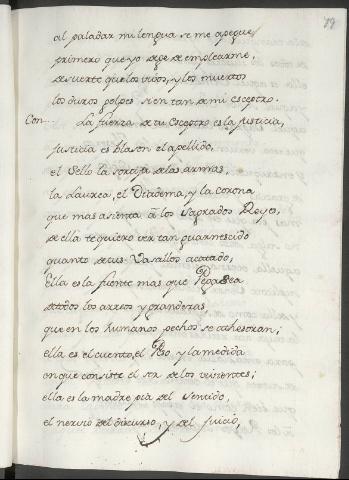 79
al paladar mi lengua se me apegue,
primero que yo dege de emplearme,
de suerte que los vivos, y los muertos
los duros golpes sientan de mi esceptro.
Con... La fuerza de tu esceptro es la justicia,
justicia es blason el apellido,
el sello la sortija de las armas,
la Laurea, el Diadema, y la corona
que mas asienta á los Sagrados Reyes,
de ella te quiero ver tan guarnescido
quanto de tus Vasallos acatado,
Ella es la fuente mas que Pegasea
de todos los arreos y grandezas
que en los humanos pechos se athesoran;
ella es el cuento, el Peso, y la medida
en que consiste el ser de los vivientes;
ella es la madre pia del sentido,
el nervio del discurso, y del juicio,